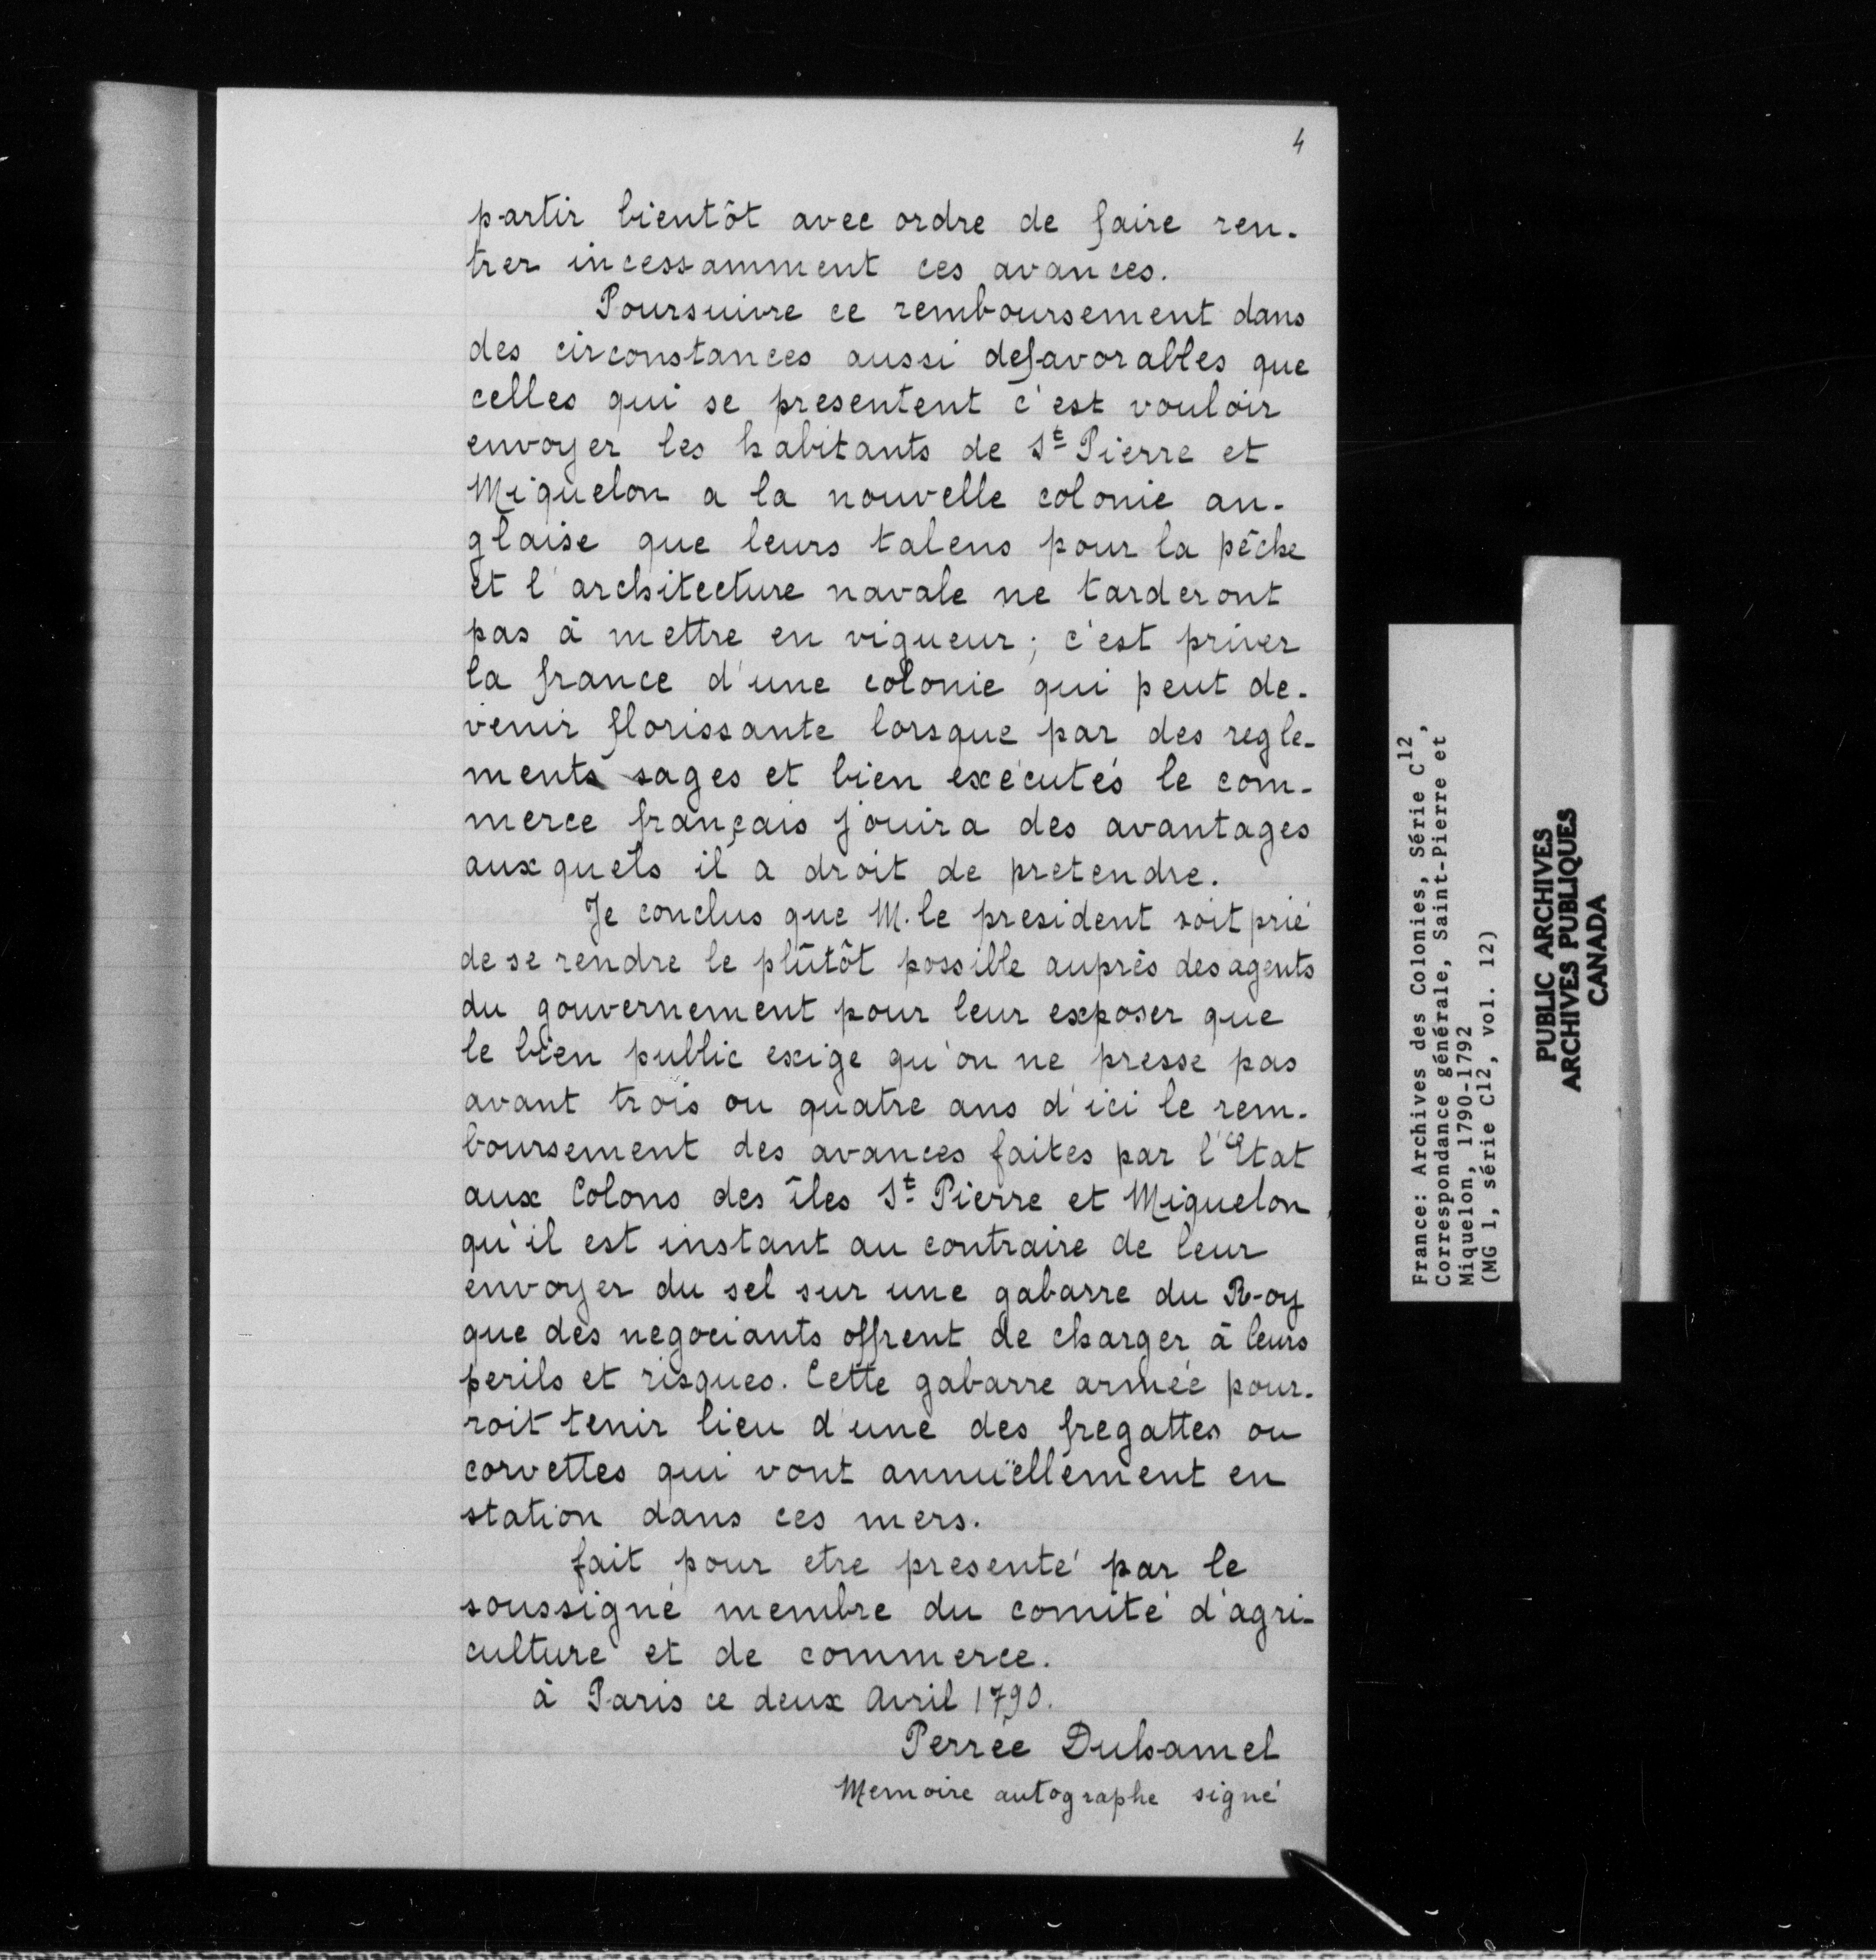 4
partir bientôt avec ordre de faire ren-
trer incessamment ces avances.
Poursuivre ce remboursement dans
des circonstances aussi defavorables que
celles qui se presentent c'est vouloir
envoyer les habitants de St Pierre et
Miquelon a la nouvelle colonie an-
glaise que leurs talens pour la pêche
et l'architecture navale ne tarderont
pas à mettre en vigueur ; c'est priver
la france d'une colonie qui peut de-
venir florissante lorsque par des regle-
ments sages et bien exécutés le com-
merce français jouira des avantages
auxquels il a droit de pretendre.
Je conclus que M. le president soit prié
de se rendre le plûtôt possible auprès des agents
du gouvernement pour leur exposer que
le bien public exige qu'on ne presse pas
avant trois ou quatre ans d'ici le rem-
boursement des avances faites par l'Etat
aux Colons des îles St Pierre et Miquelon,
qu'il est instant au contraire de leur
envoyer du sel sur une gabarre du Roy
que des negociants offrent de charger à leurs
perils et risques. Cette gabarre armée pour-
roit tenir lieu d'une des fregattes ou
corvettes qui vont annuëllement en
station dans ces mers.
fait pour etre presenté par le
soussigné membre du comité d'agri-
culture et de commerce.
à Paris ce deux Avril 1790.
Perrée Duhamel
Memoire autographe signé
France: Archives des Colonies, Série C12,
Correspondance générale, Saint-Pierre et
Miquelon, 1790-1792
(MG 1, série C12, vol. 12)
PUBLIC ARCHIVES
ARCHIVES PUBLIQUES
CANADA